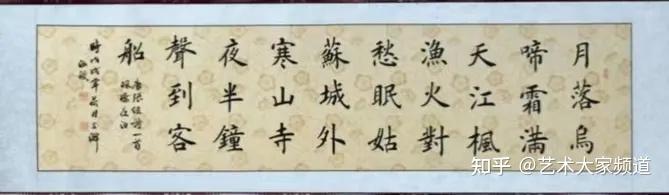 月落烏
啼霜滿
天江楓
漁火對
愁眠姑
蘇城外
寒山寺
夜半鐘
聲到客
船
唐張继詩一首
楓橋夜泊
時戊戌年
知乎 @艺术大家频道